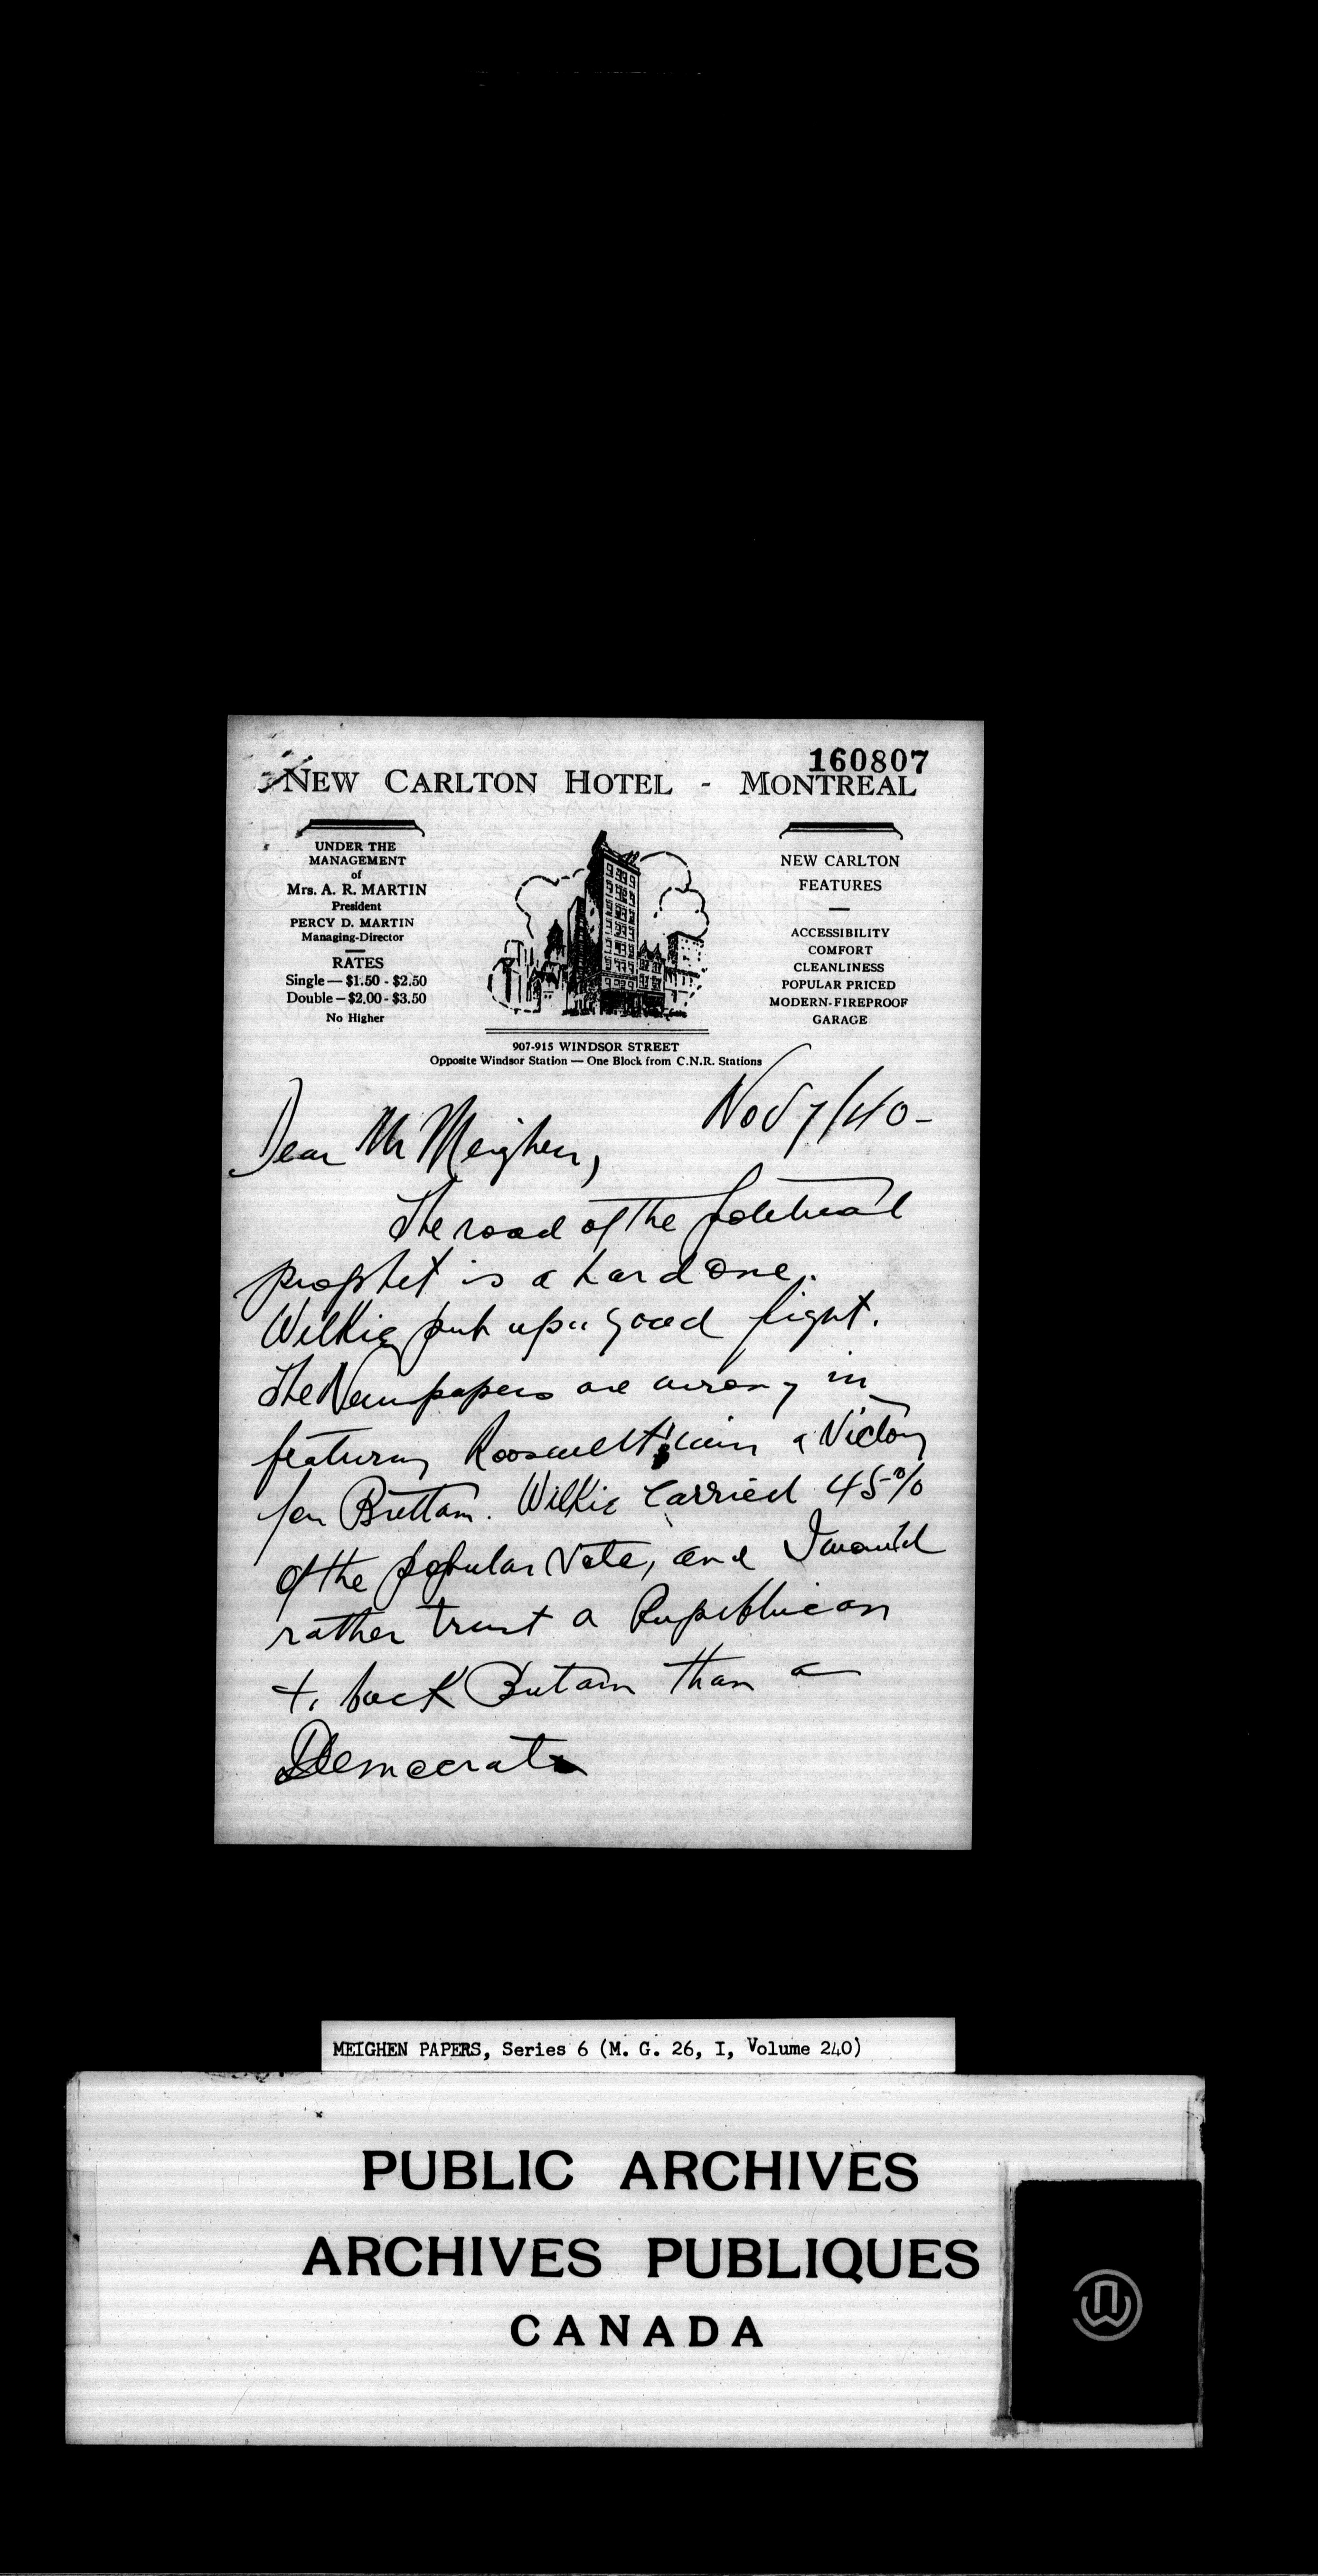 160807
NEW CARLTON HOTEL - MONTREAL
UNDER THE
MANAGEMENT
of
Mrs. A. R. MARTIN
President
PERCY D. MARTIN
Managing-Director
RATES
Single — $1.50 - $2.50
Double — $2.00 - $3.50
No Higher
NEW CARLTON
FEATURES
ACCESSIBILITY
COMFORT
CLEANLINESS
POPULAR PRICED
MODERN-FIREPROOF
GARAGE
907-915 WINDSOR STREET
Opposite Windsor Station — One Block from C.N.R. Stations
Nov 7/40-
Dear Mr Meighen,
The road of the political
prophet is a hard one.
Wilkie put up a good fight.
The Newspapers are wrong in
featuring Roosevelt's win a Victory
for Brittain. Wilkie carried 45%
of the popular vote, and I would
rather trust a Rupublican
to back Britain than a
Democrat
MEIGHEN PAPERS, Series 6 (M. G. 26, I, Volume 240)
PUBLIC ARCHIVES
ARCHIVES PUBLIQUES
CANADA